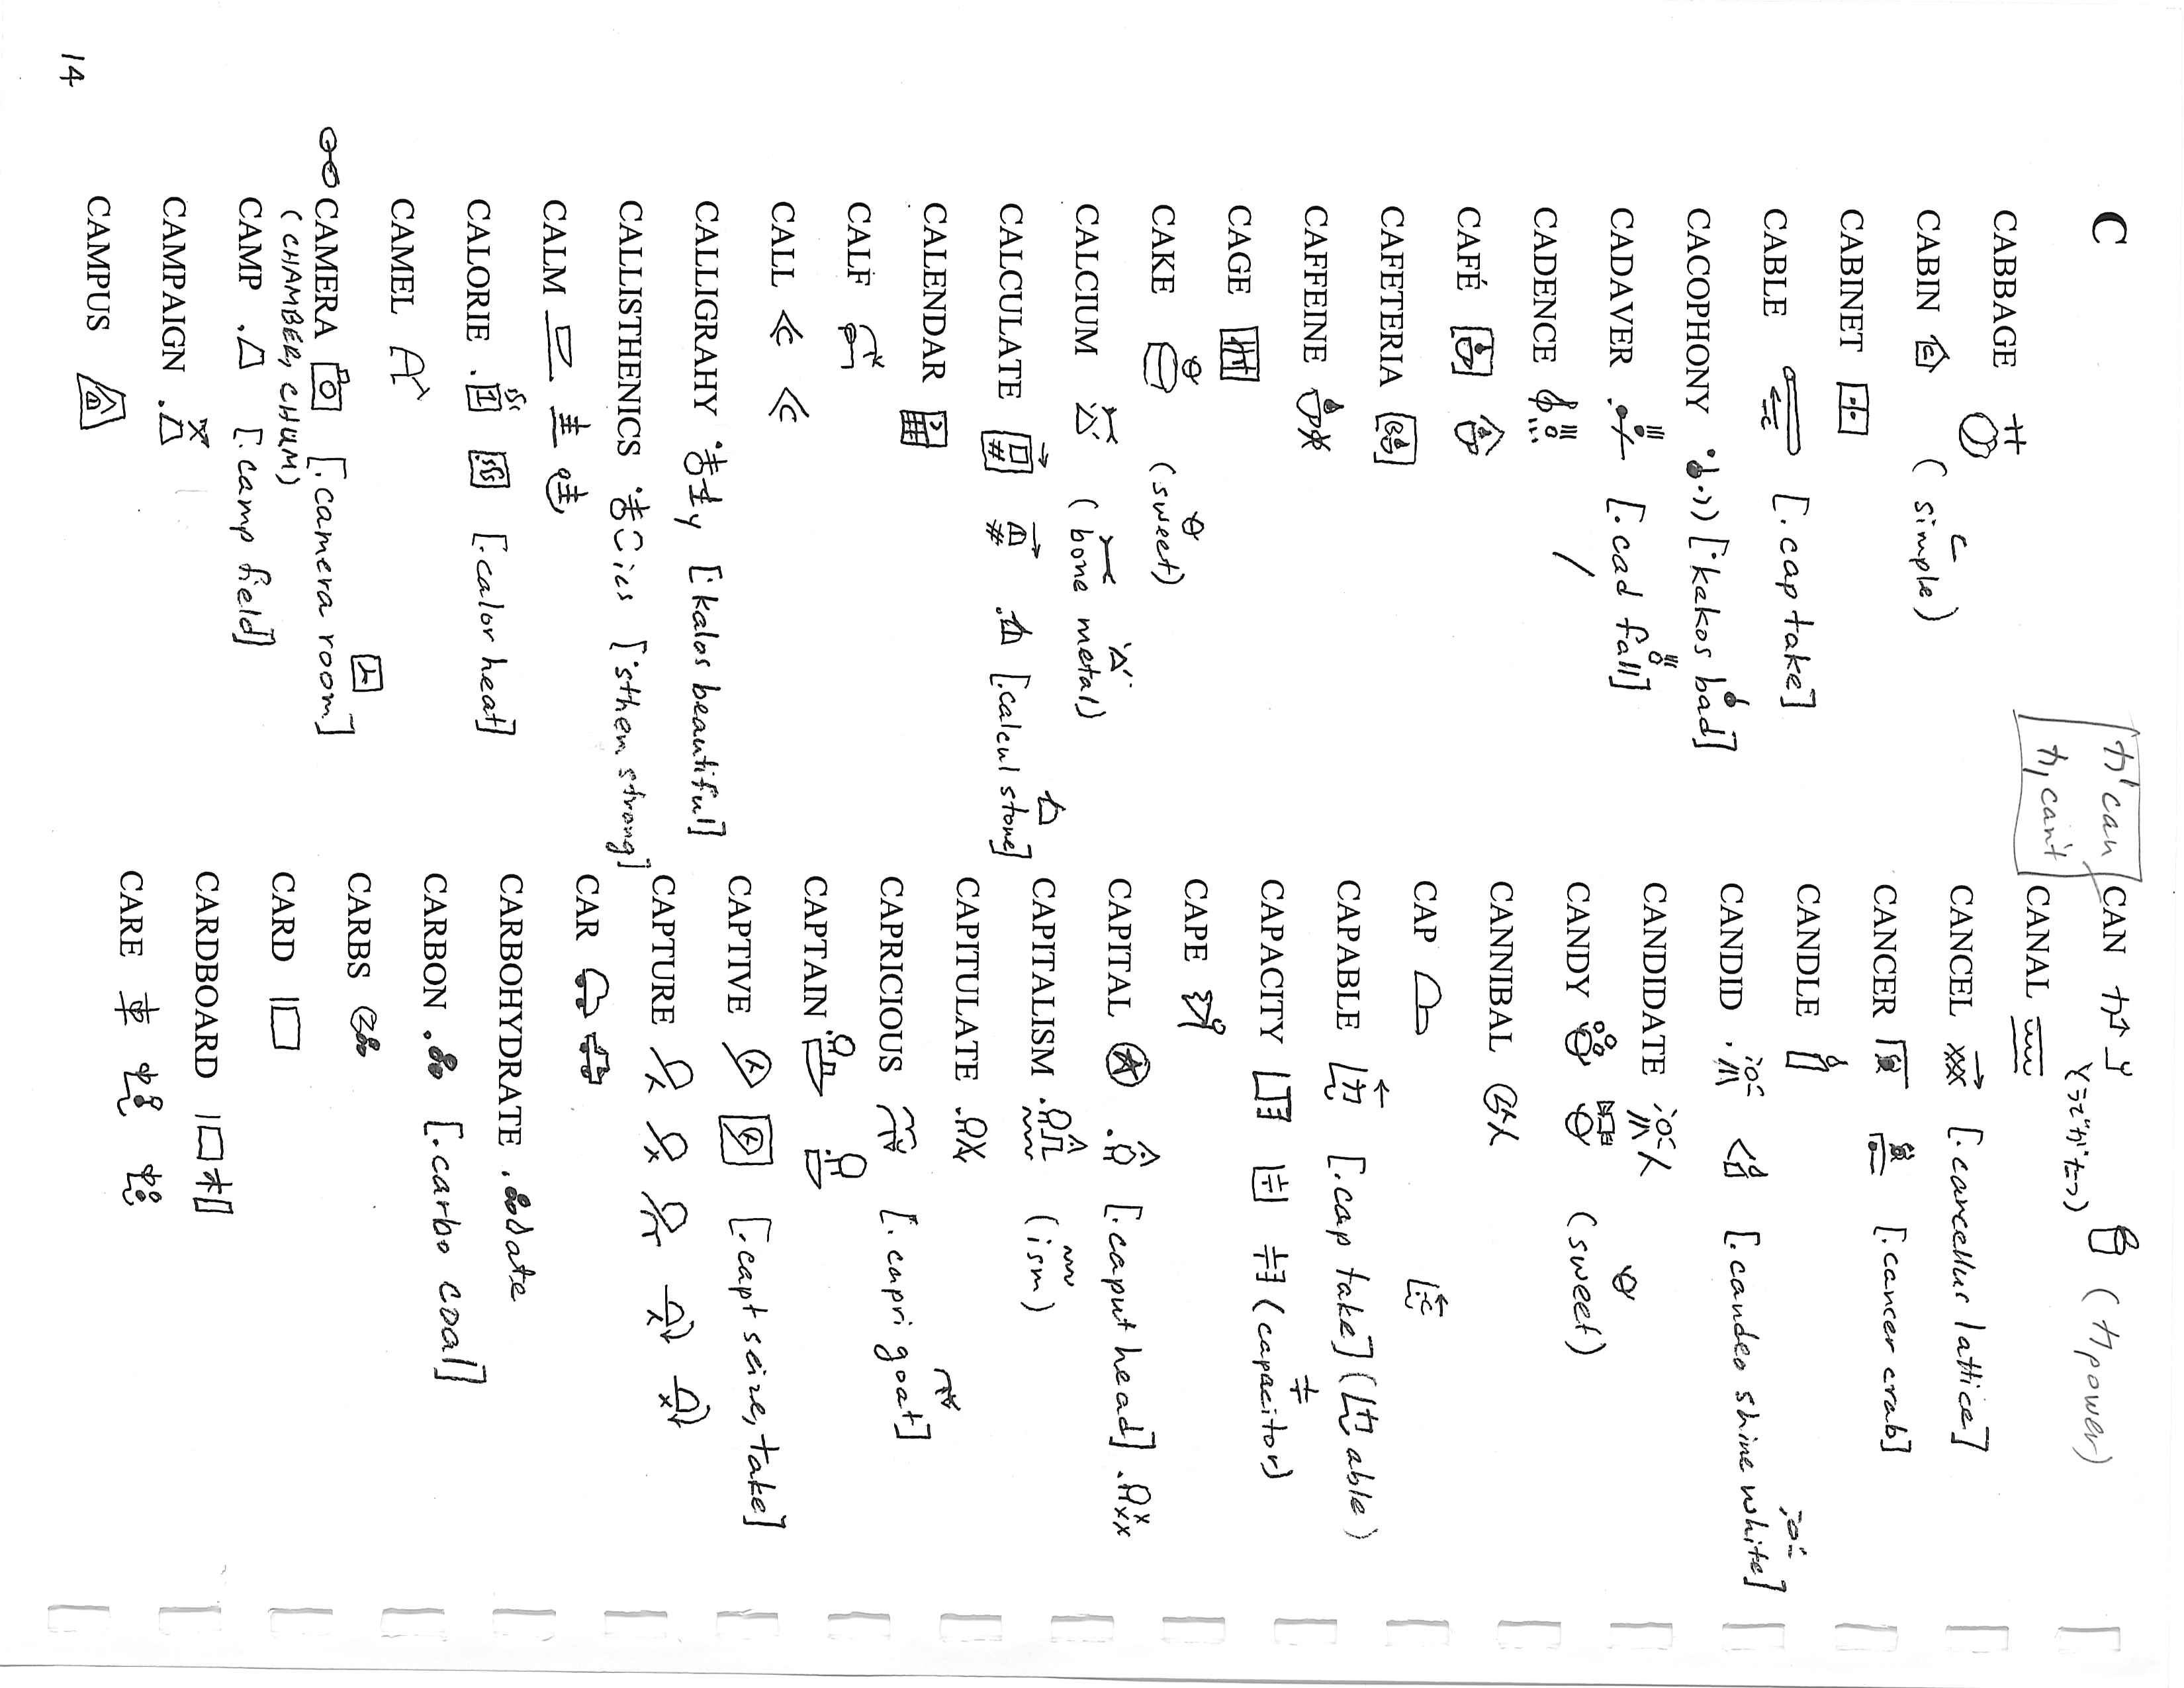 C
CABBAGE
CABIN (simple)
CABINET
CABLE [.cap take]
CACOPHONY [˙kakos bad]
CADAVER [.cad fall]
CADENCE
CAFÉ
CAFETERIA
CAFFEINE
CAGE
CAKE (sweet)
CALCIUM (bone metal)
CALCULATE [.calcul stone]
CALENDAR
CALF
CALL
CALLIGRAHY y [˙kalos beautiful]
CALLISTHENICS ics [˙sthen strong]
CALM
CALORIE [.calor heat]
CAMEL
CAMERA [.camera room]
(CHAMBER, CHUM)
CAMP [.camp field]
CAMPAIGN
CAMPUS
can
can't
CAN (power)
CANAL
CANCEL [.cancellus lattice]
CANCER [.cancer crab]
CANDLE
CANDID [.candeo shine white]
CANDIDATE
CANDY (sweet)
CANNIBAL
CAP
CAPABLE [.cap take] ( able)
CAPACITY (capacitor)
CAPE
CAPITAL [.caput head]
CAPITALISM (ism)
CAPITULATE
CAPRICIOUS [.capri goat]
CAPTAIN
CAPTIVE [.capt seize, take]
CAPTURE
CAR
CARBOHYDRATE date
CARBON [.carbo coal]
CARBS
CARD
CARDBOARD
CARE
14